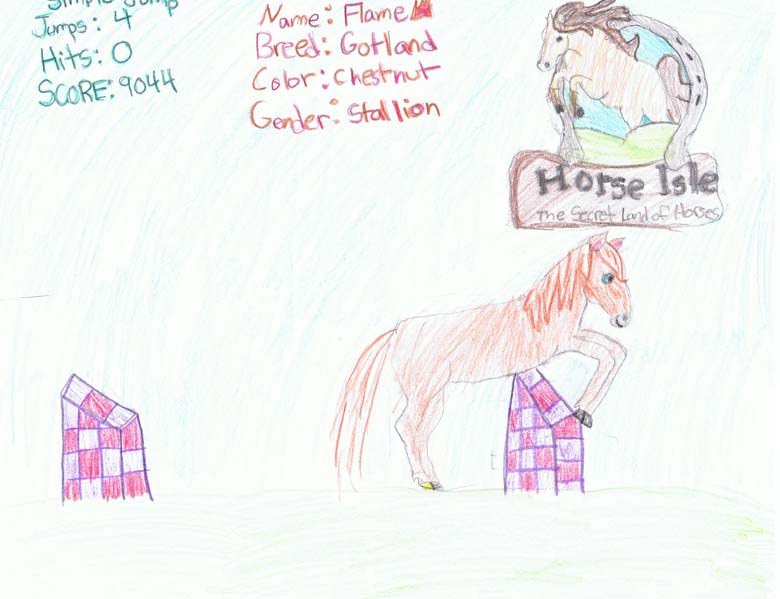 Simple Jump
Jumps: 4
Hits: 0
SCORE: 9044
Name: Flame
Breed: Gotland
Color: Chestnut
Gender: Stallion
Horse Isle
The Secret Land of Horses